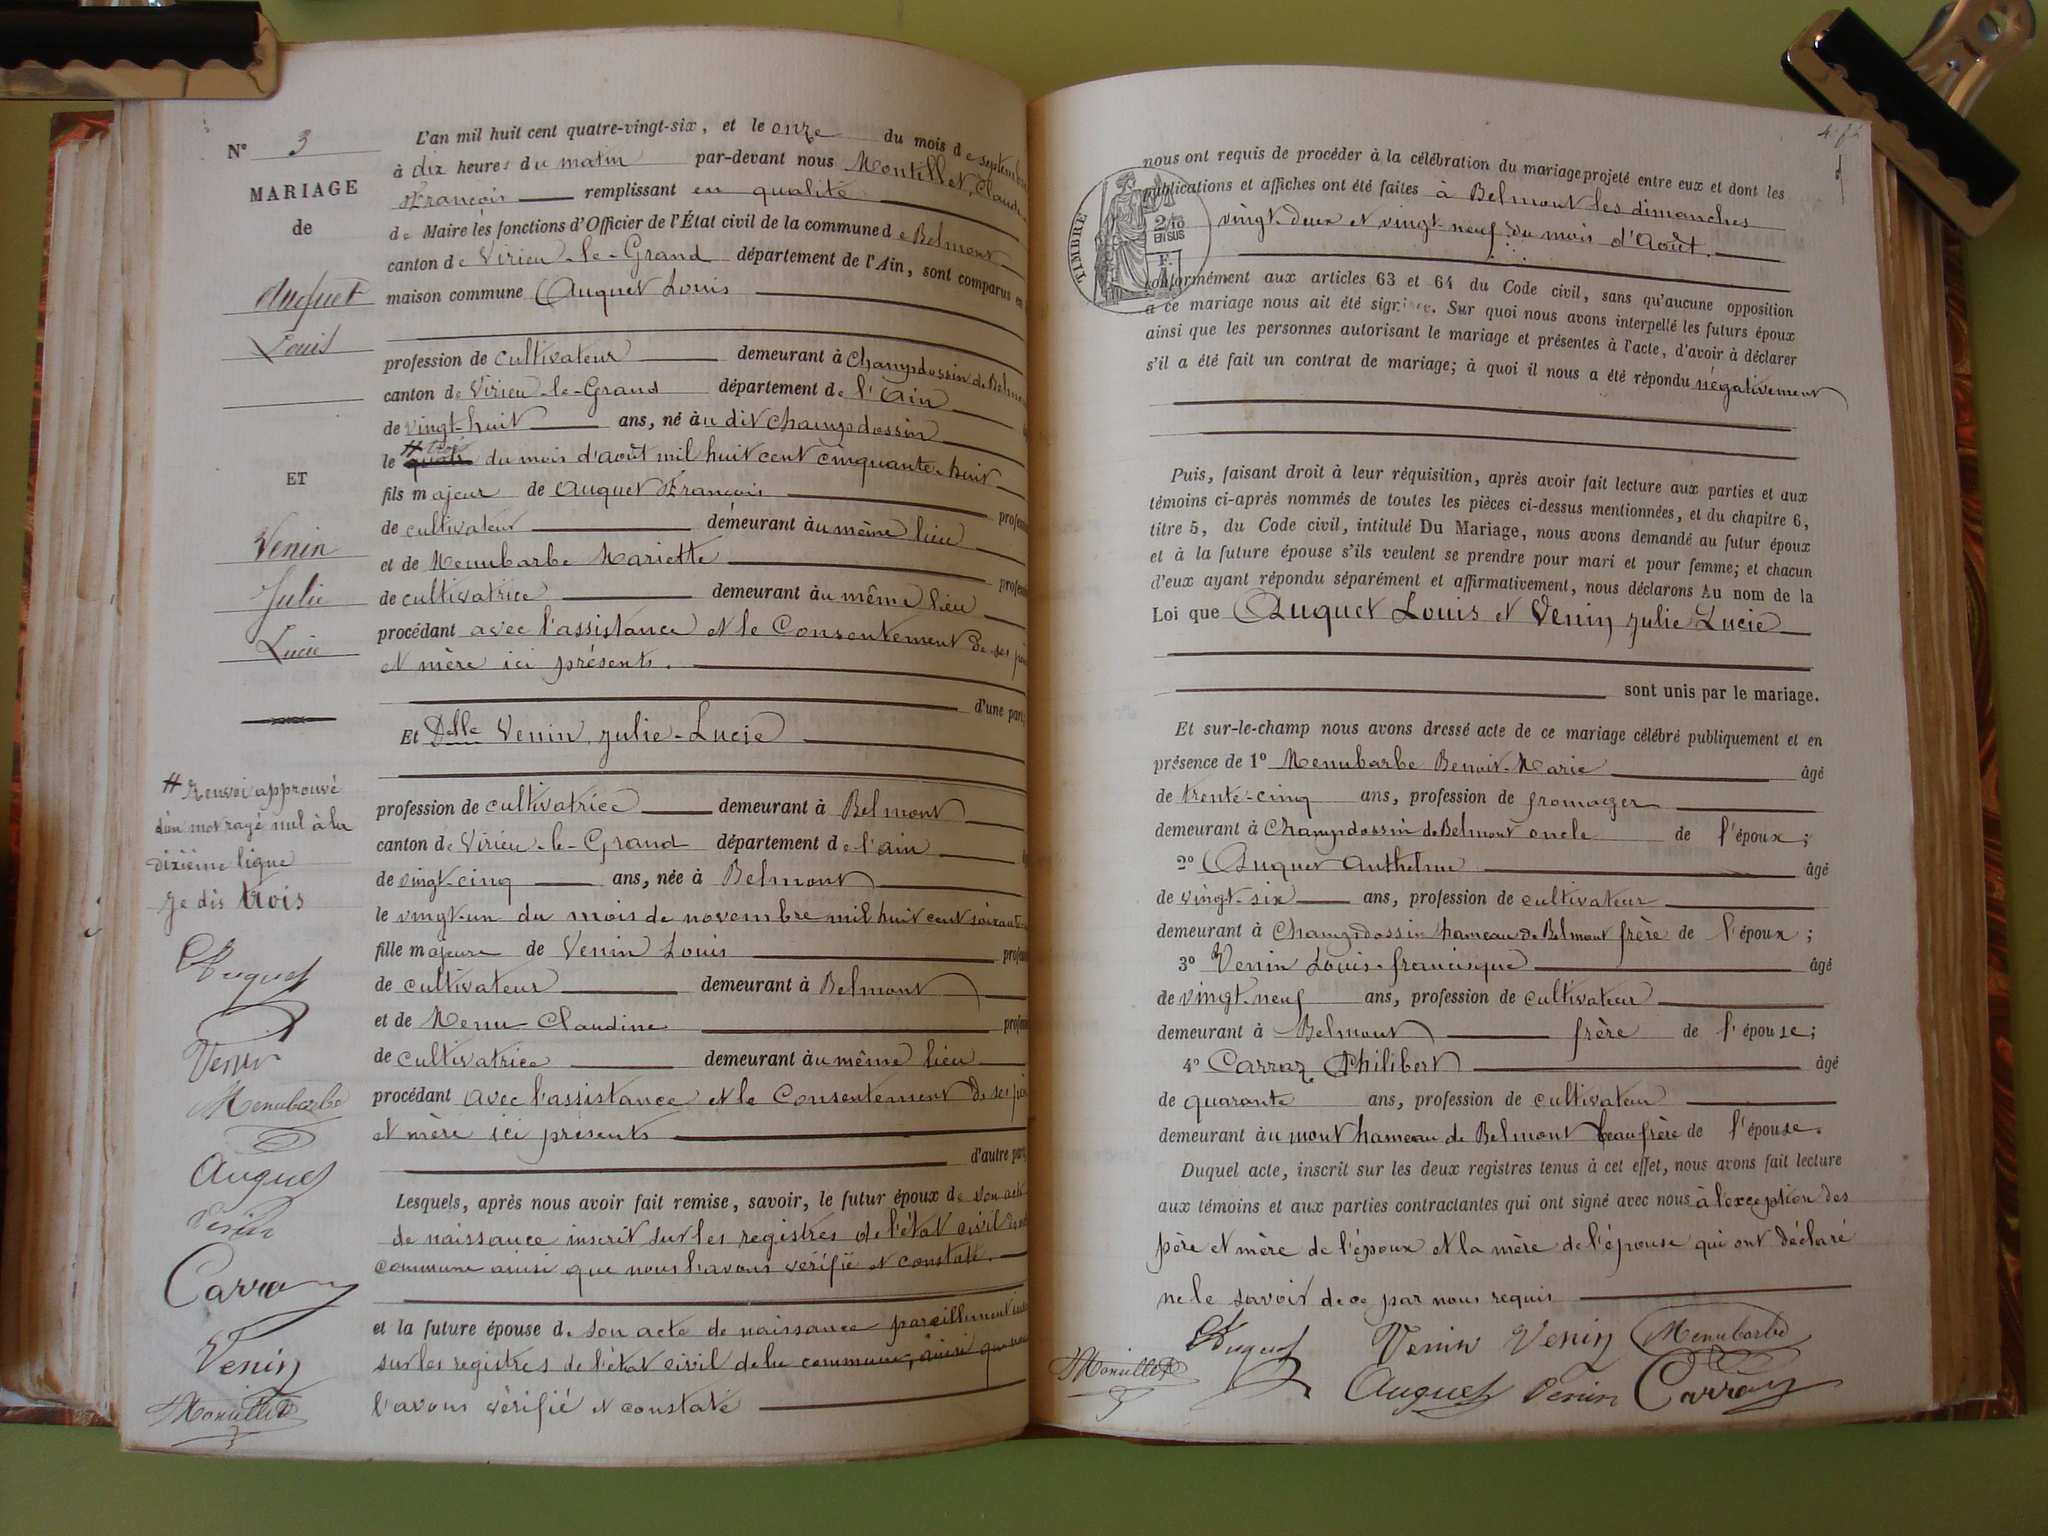 N° 3
MARIAGE
de
Auguet
Louis
ET
Venin
Julie
Lucie
# Renvoi approuvé
d'un mot rayé nul à la
dixième ligne
Je dis trois
Auguet
Venin
Menubarbe
Auguet
Venin
Carraz
Venin
Montillet
L'an mil huit cent quatre-vingt-six, et le onze du mois de septembre
à dix heures du matin par-devant nous Montillet, Claude
François remplissant en qualité
de Maire les fonctions d'Officier de l'État civil de la commune de Belmont
canton de Virieu-le-Grand département de l'Ain, sont comparus en
maison commune Auguet Louis
profession de cultivateur demeurant à Champdossin de
canton de Virieu-le-Grand département de l'Ain
de vingt-huit ans, né au dit Champdossin
le # trois du mois d'août mil huit cent cinquante-huit
fils majeur de Auguet François
de cultivateur demeurant au même lieu
et de Menubarbe Mariette
de cultivatrice demeurant au même lieu
procédant avec l'assistance et le Consentement de ses
et mère ici présents.
d'une part,
Et Delle Venin, julie-Lucie
profession de cultivatrice demeurant à Belmont
canton de Virieu-le-Grand département de l'ain
de vingt-cinq ans, née à Belmont
le vingt-un du mois de novembre mil huit cent soixante
fille majeure de Venin Louis
de cultivateur demeurant à Belmont
et de Menu Claudine
de cultivatrice demeurant au même lieu
procédant avec l'assistance et le Consentement de ses
et mère ici présents
d'autre part,
Lesquels, après nous avoir fait remise, savoir, le futur époux de son acte
de naissance inscrit sur les registres de l'état civil
commune ainsi que nous l'avons vérifié et constaté.
et la future épouse de son acte de naissance pareillement
sur les registres de l'état civil de la commune, ainsi que
l'avons vérifié et constaté
TIMBRE
2/10
EN SUS
nous ont requis de procéder à la célébration du mariage projeté entre eux et dont les
publications et affiches ont été faites à Belmont les dimanches
vingt-deux et vingt-neuf du mois d'Août.
conformément aux articles 63 et 64 du Code civil, sans qu'aucune opposition
à ce mariage nous ait été signifiée. Sur quoi nous avons interpellé les futurs époux
ainsi que les personnes autorisant le mariage et présentes à l'acte, d'avoir à déclarer
s'il a été fait un contrat de mariage; à quoi il nous a été répondu négativement
Puis, faisant droit à leur réquisition, après avoir fait lecture aux parties et aux
témoins ci-après nommés de toutes les pièces ci-dessus mentionnées, et du chapitre 6,
titre 5, du Code civil, intitulé Du Mariage, nous avons demandé au futur époux
et à la future épouse s'ils veulent se prendre pour mari et pour femme; et chacun
d'eux ayant répondu séparément et affirmativement, nous déclarons Au nom de la
Loi que Auguet Louis et Venin julie Lucie
sont unis par le mariage.
Et sur-le-champ nous avons dressé acte de ce mariage célébré publiquement et en
présence de 1° Menubarbe Benoit-Marie âgé
de trente-cinq ans, profession de fromager
demeurant à Champdossin de Belmont oncle de l'époux;
2° Auguet Anthelme âgé
de vingt-six ans, profession de cultivateur
demeurant à Champdossin hameau de Belmont frère de l'époux;
3° Venin Louis-francisque âgé
de vingt-neuf ans, profession de cultivateur
demeurant à Belmont frère de l'épouse;
4° Carraz Philibert âgé
de quarante ans, profession de cultivateur
demeurant au mont hameau de Belmont beau frère de l'épouse.
Duquel acte, inscrit sur les deux registres tenus à cet effet, nous avons fait lecture
aux témoins et aux parties contractantes qui ont signé avec nous à l'exception des
père et mère de l'époux et la mère de l'épouse qui ont déclaré
ne le savoir de ce par nous requis
Auguet Venin Venin Menubarbe
Montillet Auguet Venin Carraz